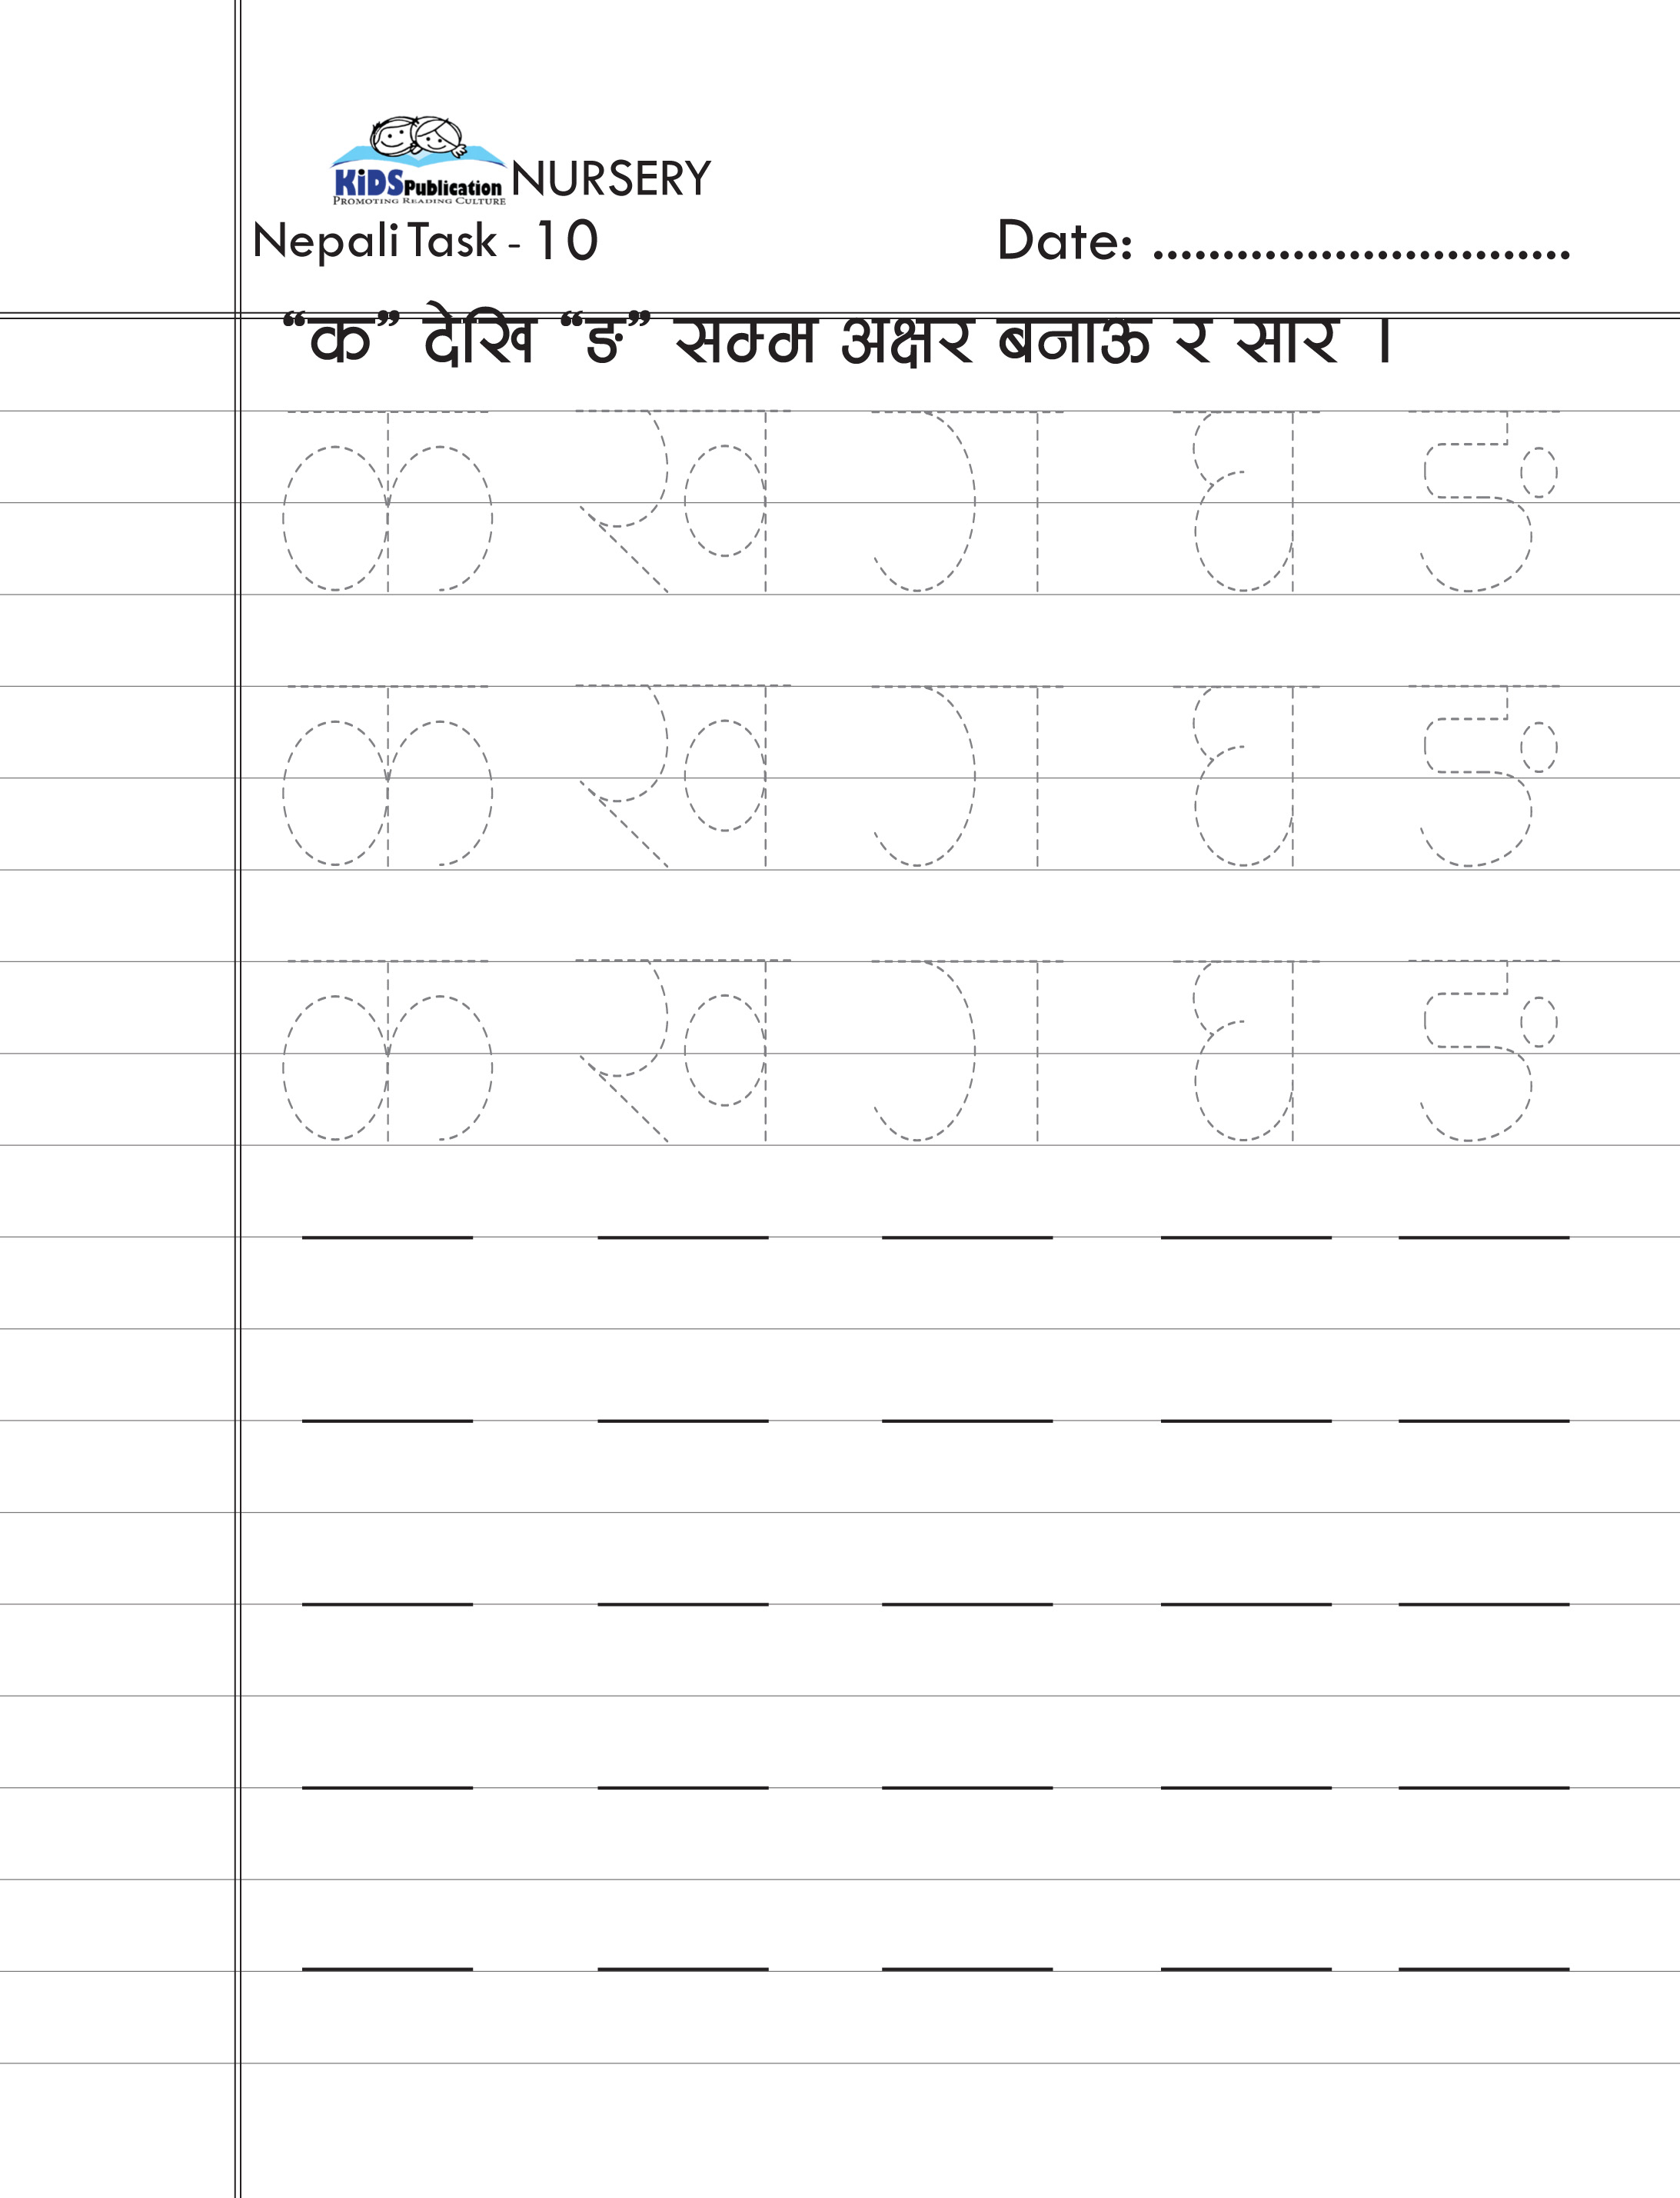 KiDS Publication NURSERY
PROMOTING READING CULTURE
Nepali Task - 10 Date: ..............................
“क” देखि “ङ” सम्म अक्षर बनाऊ र सार ।
क ख ग घ ङ
क ख ग घ ङ
क ख ग घ ङ